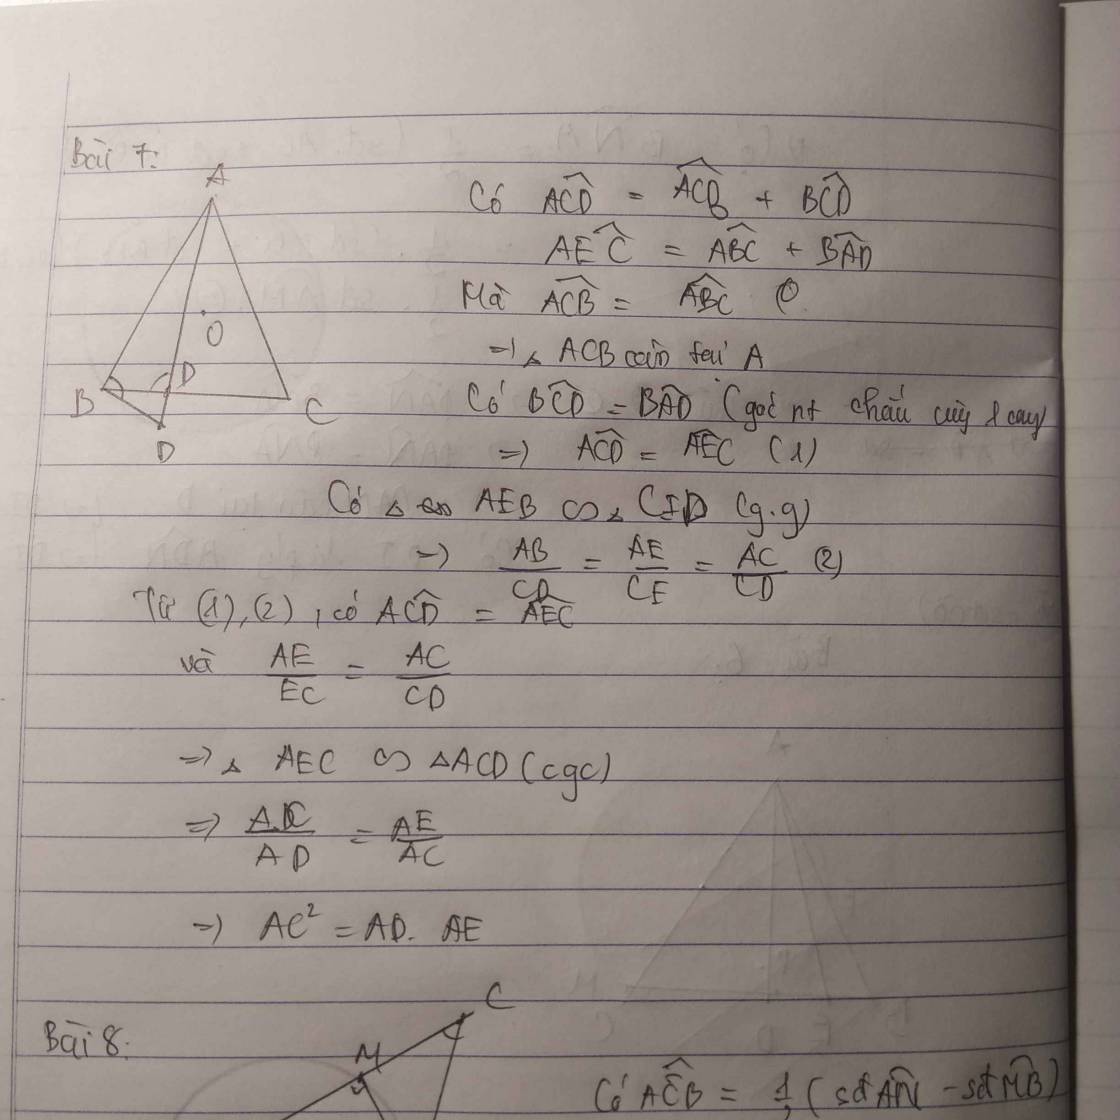 Bài 7:
A
O
B
D
C
D
Có ACD̂ = ACB̂ + BCD̂
AEĈ = ABĈ + BAD̂
Mà ACB̂ = ABĈ
=> △ ACB cân A
Có BCD̂ = BAD̂ (góc nt chắn cùng 1 cung)
=> ACD̂ = AEĈ (1)
Có △ AEB ∽ △ CED (g.g)
=> AB/CD = AE/CE = AC/CD (2)
Từ (1), (2), có ACD̂ = AEĈ
và AE/EC = AC/CD
=> △ AEC ∽ △ ACD (cgc)
=> AC/AD = AE/AC
=> AC² = AD. AE
Bài 8:
C
M
Có ACB̂ = 1/2 (sđ AN̂ - sđ MB̂)